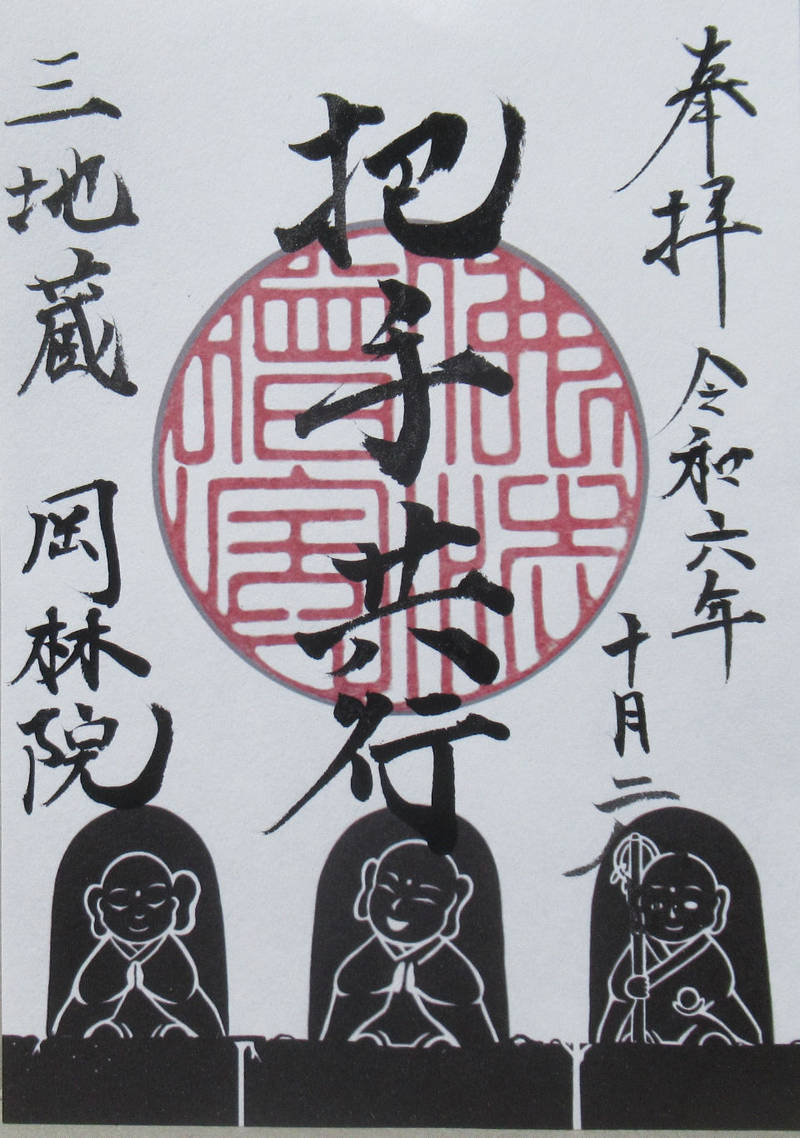 奉拝
令和六年
十月二
把手共行
佛法僧寳
三地蔵
岡林院